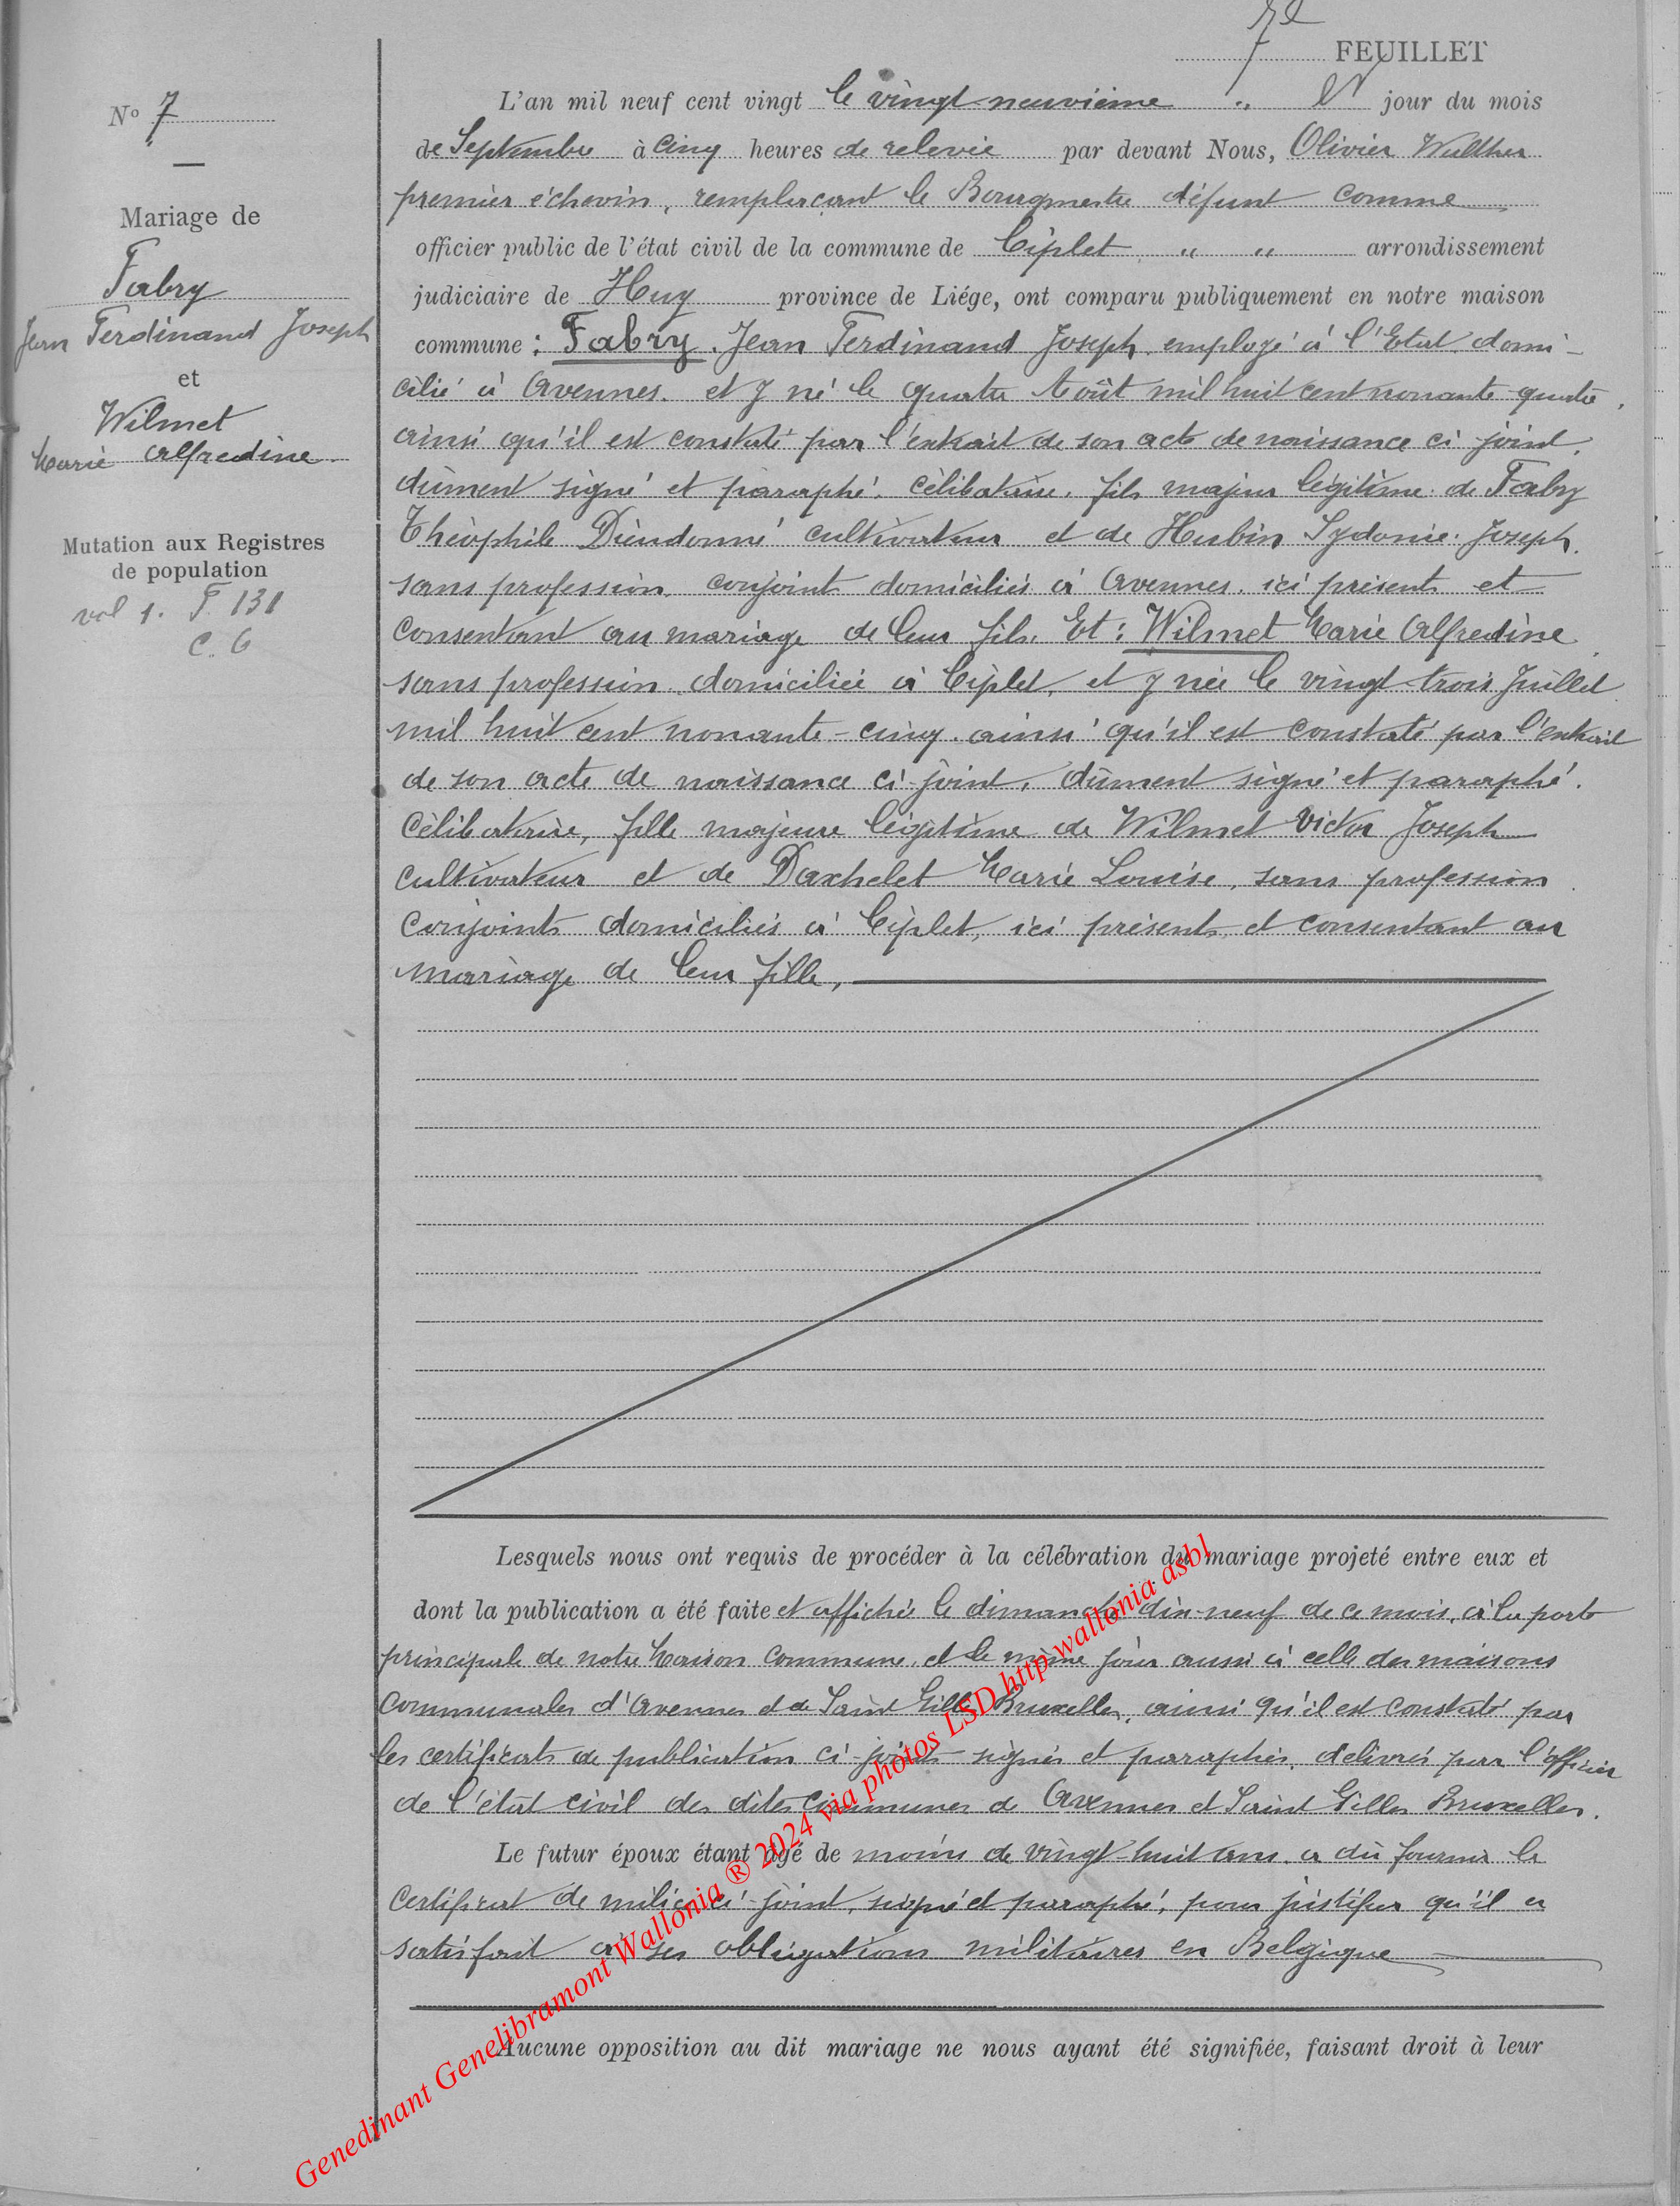 7e FEUILLET
N° 7
Mariage de
Fabry
Jean Ferdinand Joseph
et
Wilmet
Marie Alfredine
Mutation aux Registres
de population
vol 1. F. 131
C. 6
L'an mil neuf cent vingt le vingt-neuvième " jour du mois
de Septembre à cinq heures de relevée par devant Nous, Olivier
premier échevin, remplaçant le Bourgmestre défunt comme
officier public de l'état civil de la commune de Ciplet " " arrondissement
judiciaire de Huy province de Liége, ont comparu publiquement en notre maison
commune : Fabry. Jean Ferdinand Joseph. employé à l'Etat. domi-
cilié à Avennes. et y né le quatre Août mil huit cent nonante-quatre.
ainsi qu'il est constaté par l'extrait de son acte de naissance ci-joint,
dûment signé et paraphé. célibataire. fils majeur légitime de Fabry
Théophile Dieudonné cultivateur et de Hubin Sydonie. Joseph.
sans profession. conjoints domiciliés à Avennes. ici présents et
consentant au mariage de leur fils. Et : Wilmet Marie Alfredine
sans profession. domiciliée à Ciplet, et y née le vingt-trois Juillet
mil huit cent nonante-cinq. ainsi qu'il est constaté par l'extrait
de son acte de naissance ci-joint, dûment signé et paraphé.
célibataire, fille majeure légitime de Wilmet Victor Joseph
cultivateur et de Daxhelet Marie Louise, sans profession
conjoints domiciliés à Ciplet, ici présents et consentant au
mariage de leur fille,
Lesquels nous ont requis de procéder à la célébration du mariage projeté entre eux et
dont la publication a été faite et affichée le dimanche dix-neuf de ce mois, à la porte
principale de notre Maison Commune, et le même jour aussi à celle des maisons
communales d'Avennes et de Saint Gilles Bruxelles, ainsi qu'il est constaté par
les certificats de publication ci-joints signés et paraphés. délivrés par l'officier
de l'état civil des dites communes de Avennes et Saint Gilles Bruxelles.
Le futur époux étant âgé de moins de vingt-huit ans. a dû fournir le
certificat de milice ci-joint, signé et paraphé, pour justifier qu'il a
satisfait à ses obligations militaires en Belgique
Aucune opposition au dit mariage ne nous ayant été signifiée, faisant droit à leur
Genedinant Genelibramont Wallonia ® 2024 via photos LSD http wallonia asbl